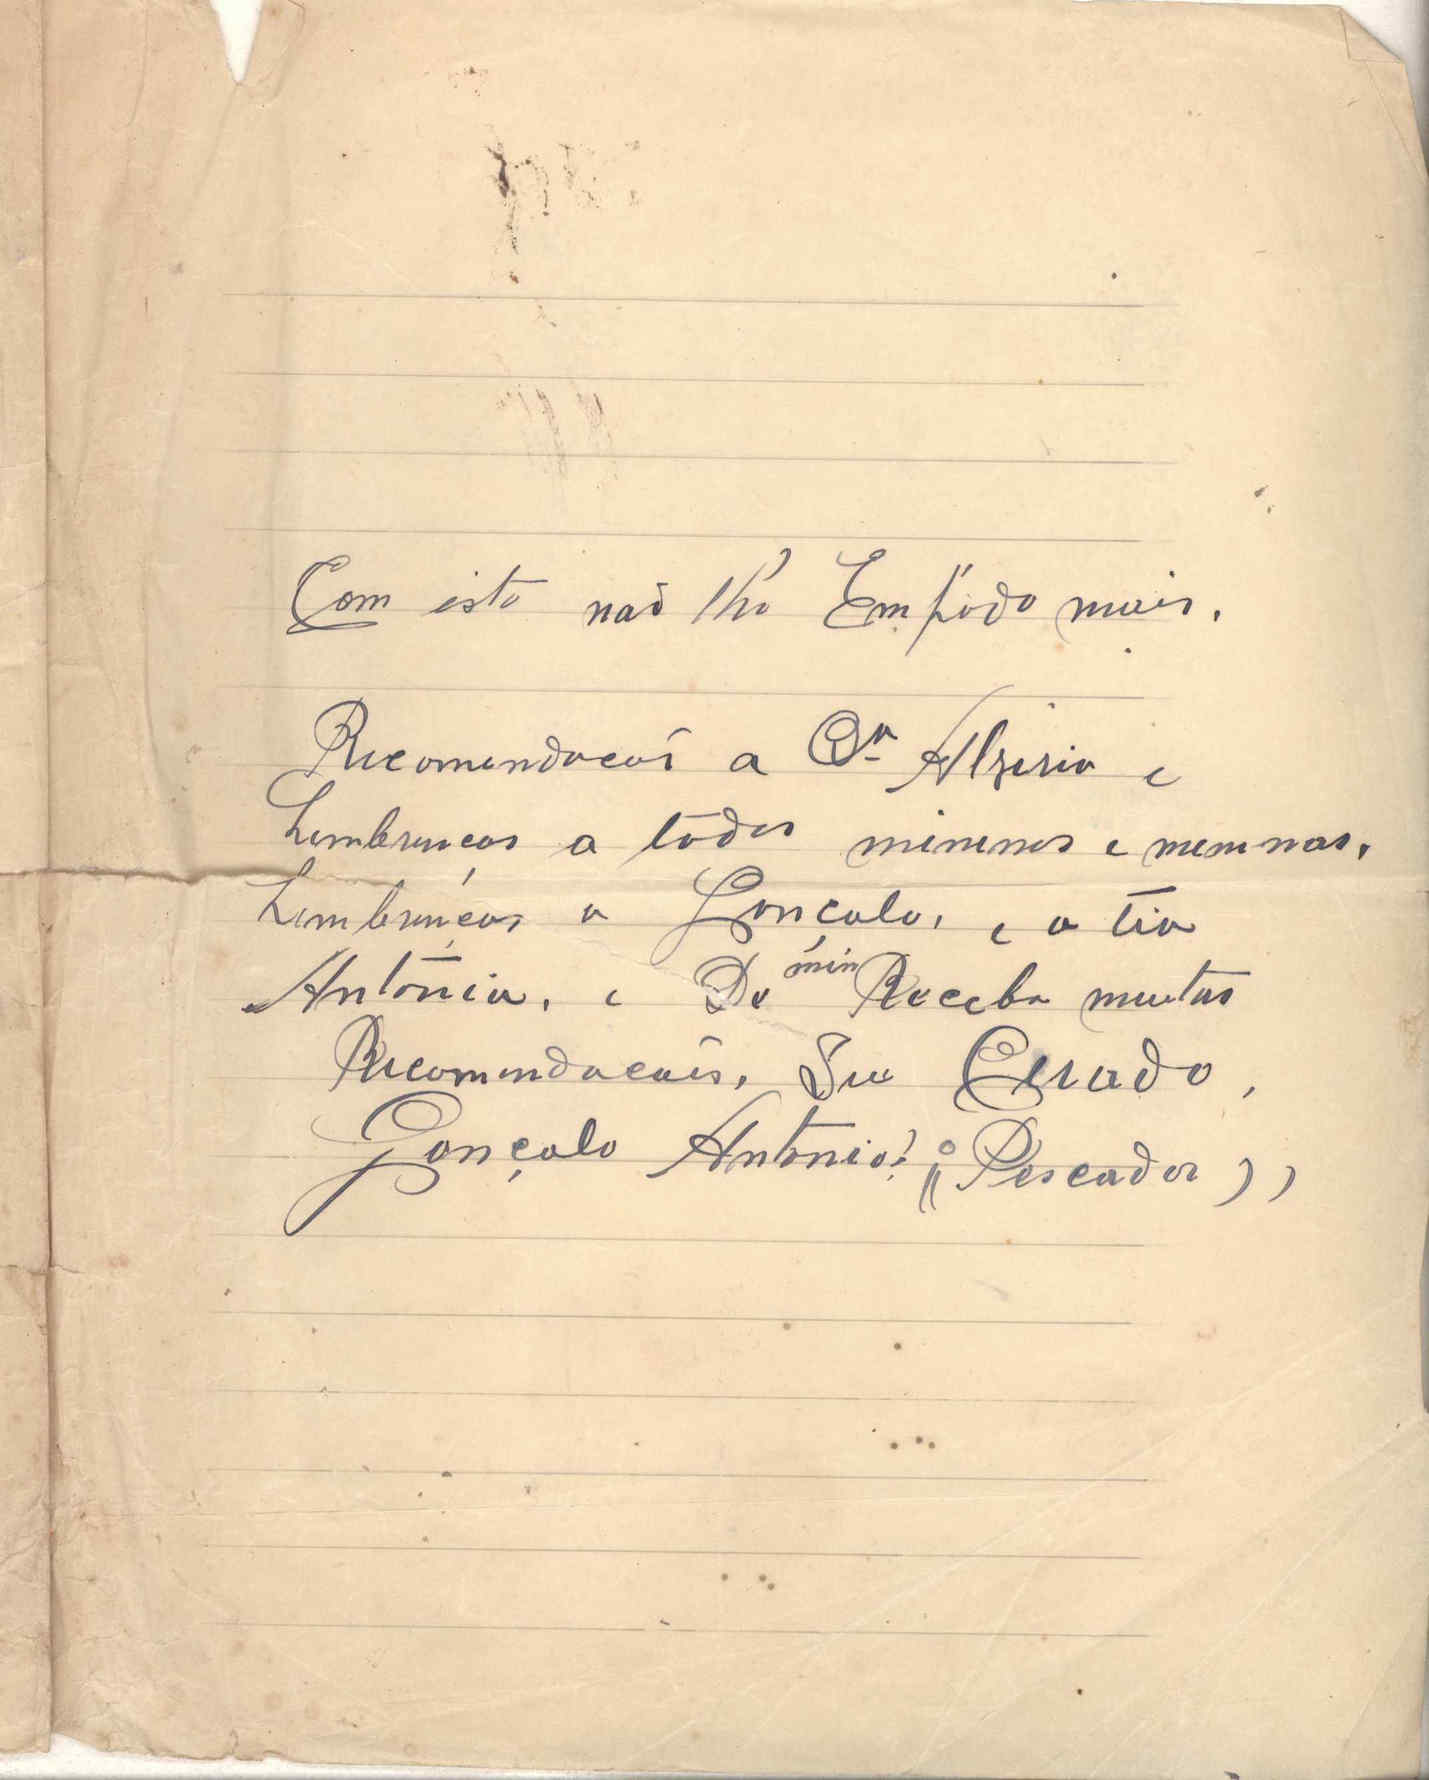 Com isto naõ lhe Empido mais.
Recomendacoĩ a Dª Alziria e
Lembranças a todos mininos e meninas,
Lembranças a Gonçalo, e a tia
Antónia, e De min Receba muitas
Recomendacois, Seu Criado,
Gonçalo Antonio! (( Pescador ))